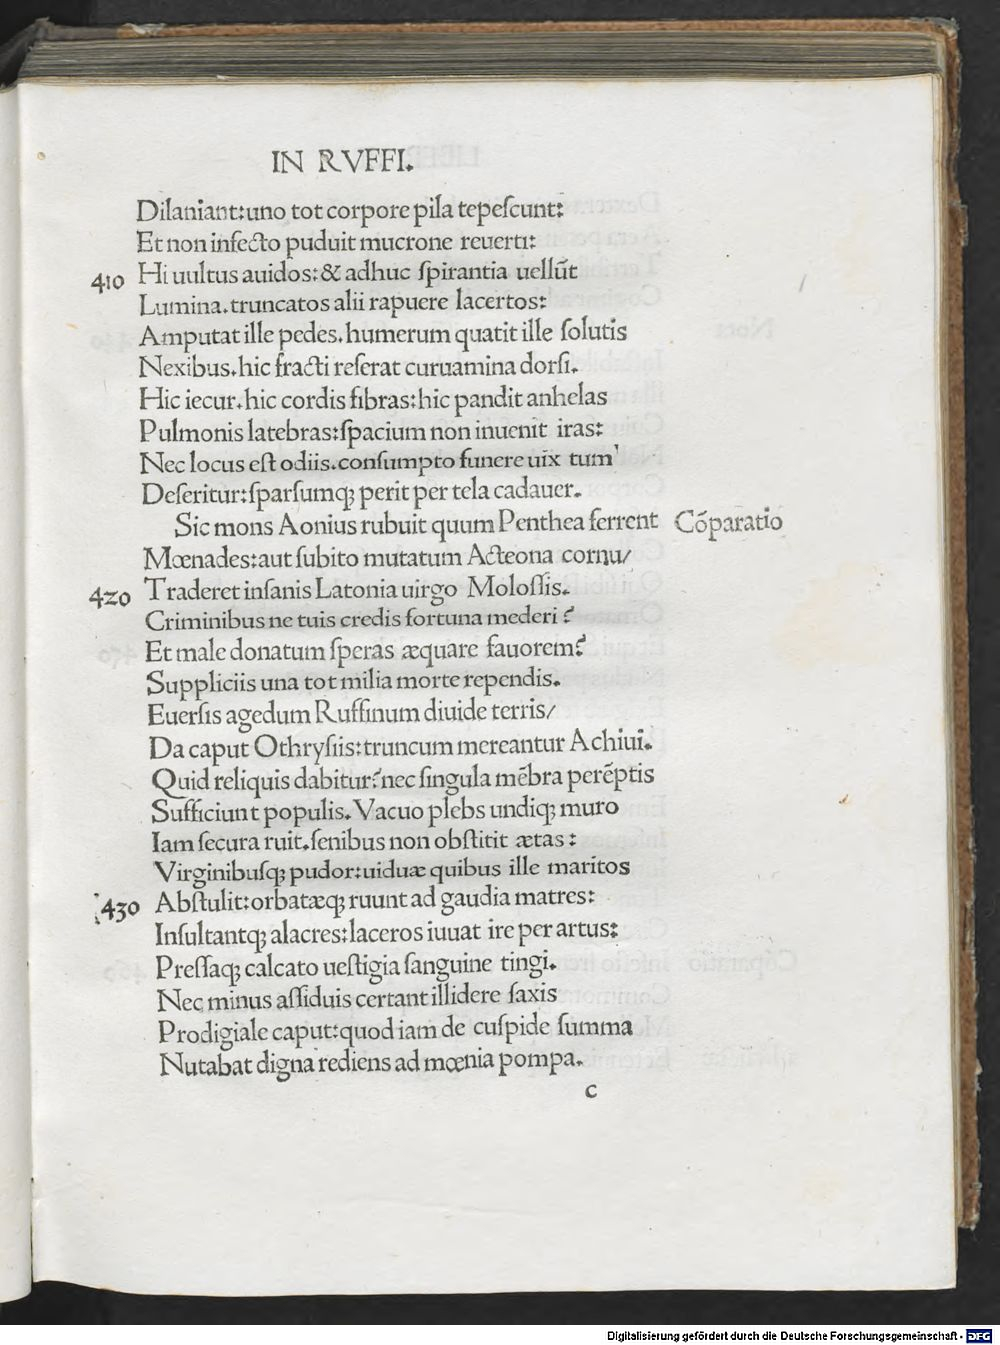 IN RVFFI.
Dilaniant:uno tot corpore pila tepeſcunt:
Et non infecto puduit mucrone reuerti:
410 Hi uultus auidos:& adhuc ſpirantia uellūt
Lumina.truncatos alii rapuere lacertos:
Amputat ille pedes.humerum quatit ille ſolutis
Nexibus.hic fracti reſerat curuamina dorſi.
Hic iecur.hic cordis fibras:hic pandit anhelas
Pulmonis latebras:ſpacium non inuenit iras:
Nec locus eſt odiis.conſumpto funere uix tum'
Deſeritur:ſparſumqꝫ perit per tela cadauer.
Sic mons Aonius rubuit quum Penthea ferrent Cōparatio
Mœnades:aut ſubito mutatum Acteona cornu/
420 Traderet inſanis Latonia uirgo Moloſſis.
Criminibus ne tuis credis fortuna mederi?
Et male donatum ſperas æquare fauorem?
Suppliciis una tot milia morte rependis.
Euerſis agedum Ruffinum diuide terris/
Da caput Othryſiis:truncum mereantur Achiui.
Quid reliquis dabitur?nec ſingula mēbra perēptis
Sufficiunt populis.Vacuo plebs undiqꝫ muro
Iam ſecura ruit.ſenibus non obſtitit ætas:
Virginibuſqꝫ pudor:uiduæ quibus ille maritos
430 Abſtulit:orbatæqꝫ ruunt ad gaudia matres:
Inſultantqꝫ alacres:laceros iuuat ire per artus:
Preſſaqꝫ calcato ueſtigia ſanguine tingi.
Nec minus aſſiduis certant illidere ſaxis
Prodigiale caput:quod iam de cuſpide ſumma
Nutabat digna rediens ad mœnia pompa.
c
Digitalisierung gefördert durch die Deutsche Forschungsgemeinschaft - DFG